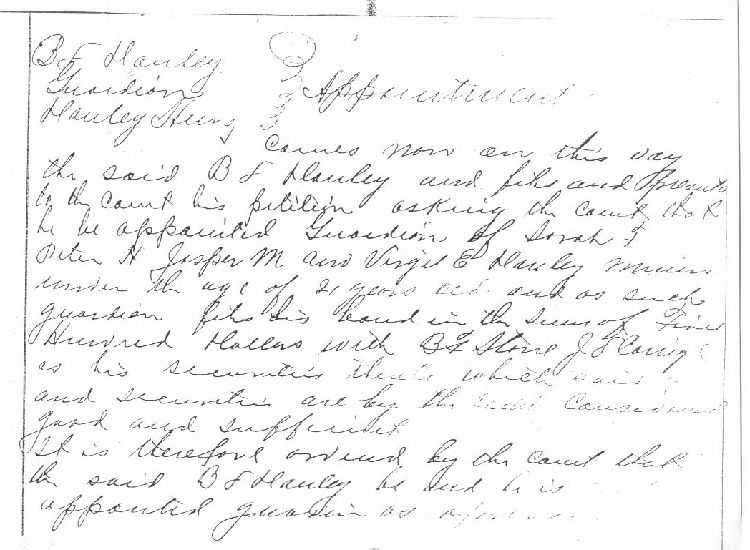 B F Hanley
Guardian
Hanley
Appointment
Comes now on this day
the said B F Hanley and files and presents
to the Court his petition asking the Court that
he be appointed Guardian of Sarah F
Peter H Jasper M and Virgil E Hanley minors
under the age of 21 years old and as such
guardian files his bond in the sum of
Hundred Dollars with B F Stone J F
as his securities which said
and securities are by the Court Considered
good and sufficient
It is therefore ordered by the Court that
the said B F Hanley be and he is
appointed guardian as